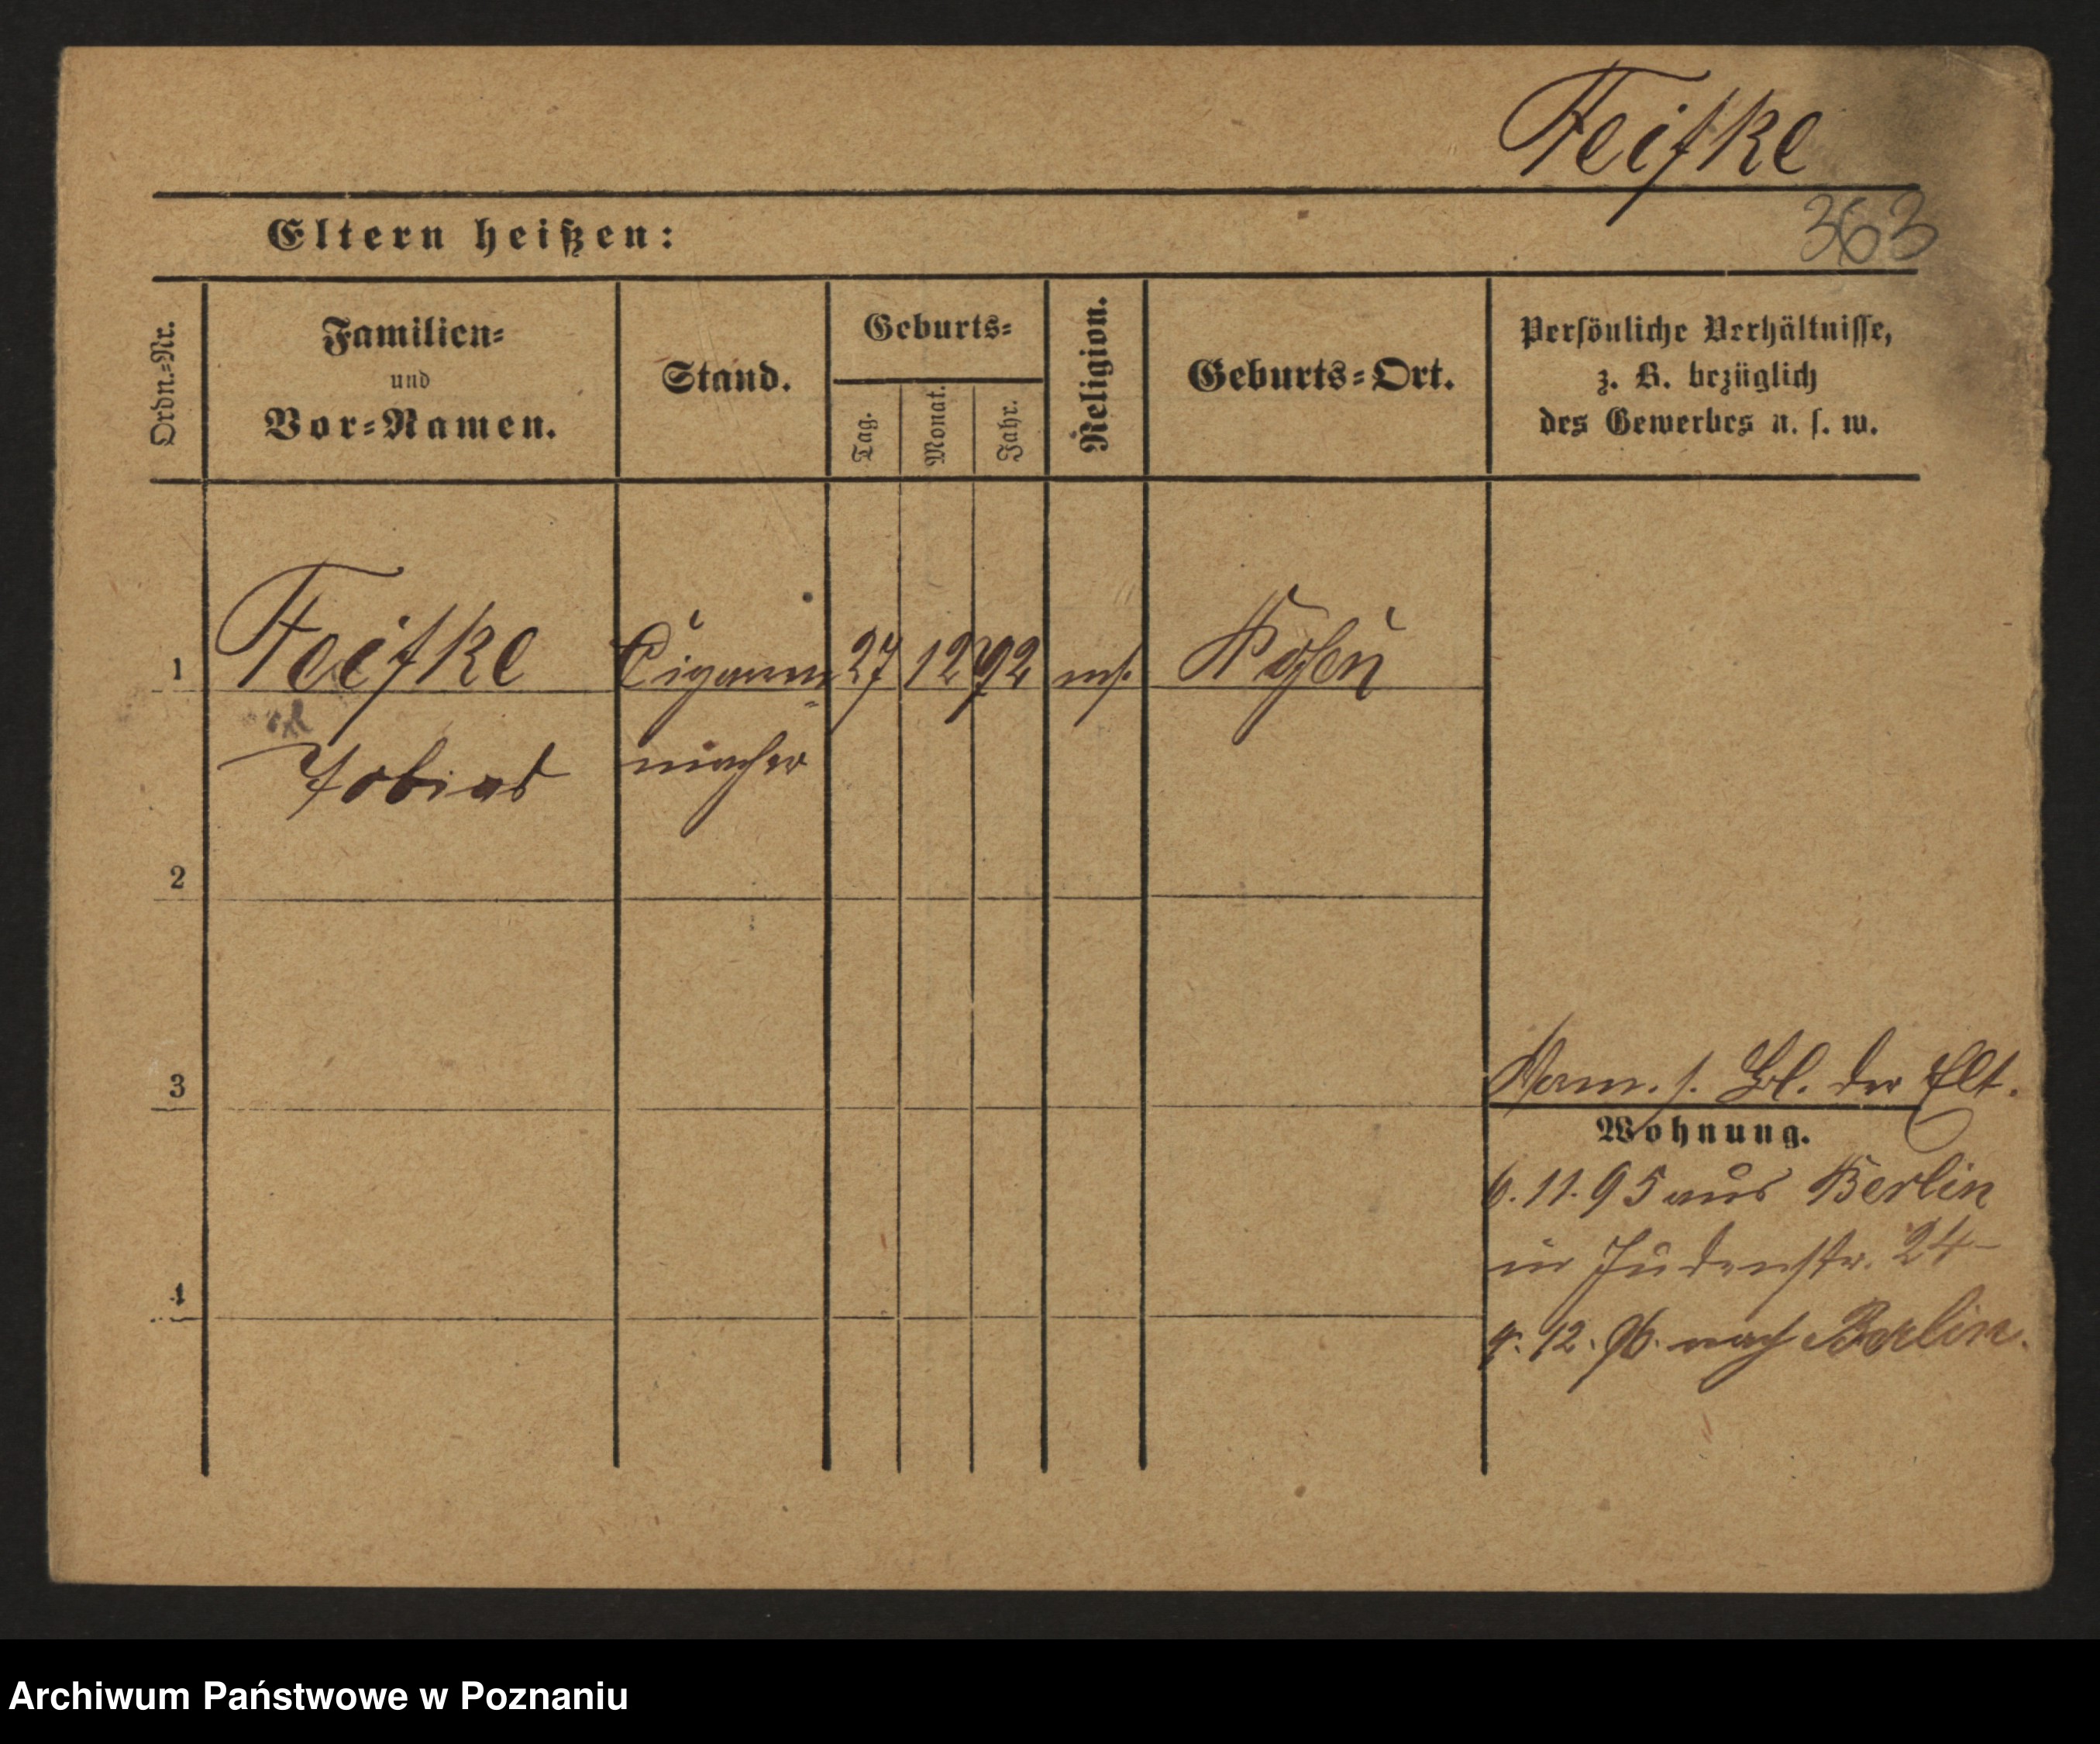 Feifke
363
Eltern heißen:
Ordn.-Nr.
Familien-
und
Vor-Namen.
Stand.
Geburts-
Tag.
Monat.
Jahr.
Religion.
Geburts-Ort.
Persönliche Verhältnisse,
z. B. bezüglich
des Gewerbes u. s. w.
1 Feifke Cigarren- 27 12 72 mos. Posen
Tobias macher
2
3
s. Bl. der Elt.
Wohnung.
6. 11. 95 aus Berlin
in Judenstr. 24
4
9. 12. 96. nach Berlin.
Archiwum Państwowe w Poznaniu